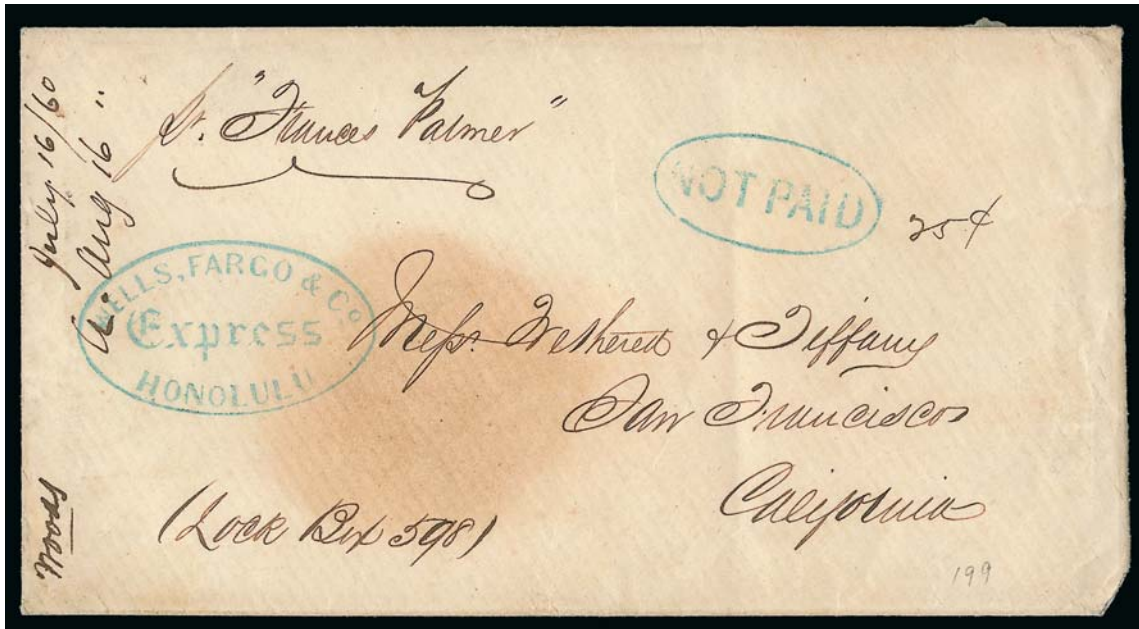 July 16/60
A. Aug 16 "
Pr. "Frances Palmer"
NOT PAID
25¢
WELLS, FARGO & CO.
Express
HONOLULU
Mess. Wethered & Tiffany
San Francisco
California
(Lock Box 598)
Woods
199